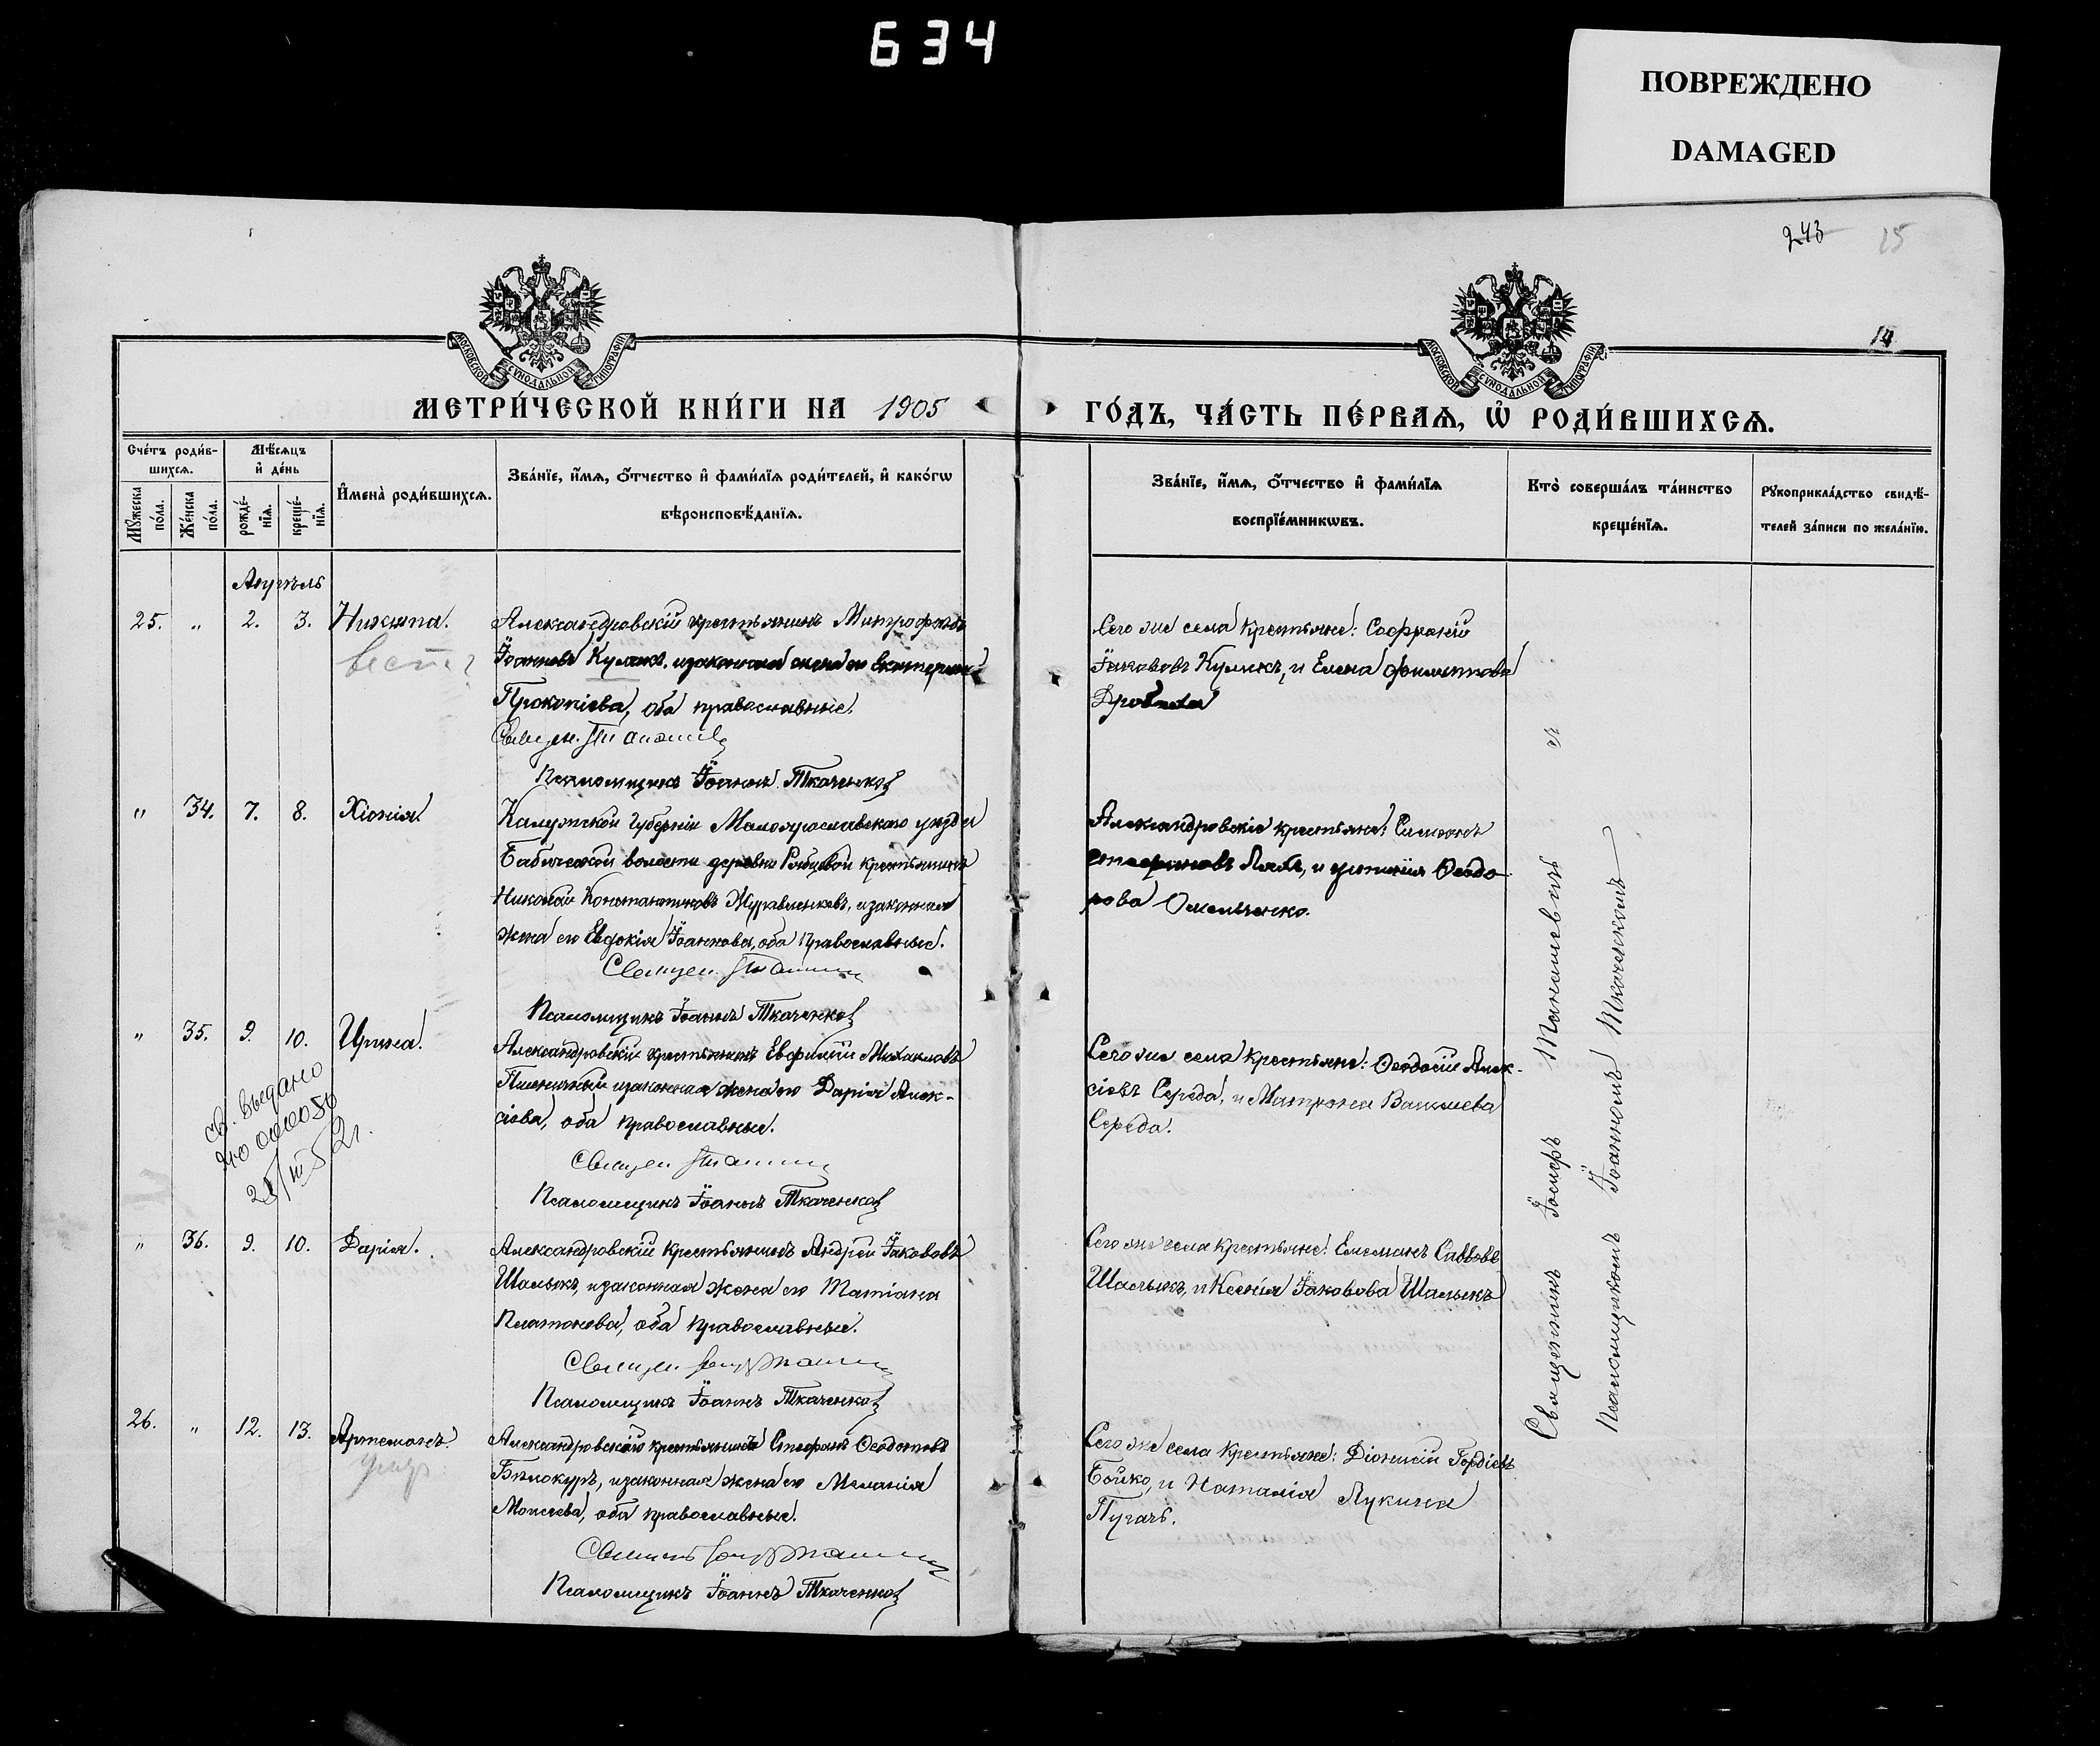 634
ПОВРЕЖДЕНО
DAMAGED
243 15
14
МОСКОВСКОЙ СУНОДАЛЬНОЙ ТИПОГРАФІИ
МОСКОВСКОЙ СУНОДАЛЬНОЙ ТИПОГРАФІИ
МЕТРИ́ЧЕСКОЙ КНИ́ГИ НА 1905
ГО́ДЪ, ЧА́СТЬ ПЕ́РВАѦ, Ѽ РОДИ́ВШИХСѦ.
Сче́тъ роди́в-
шихсѧ.
Мꙋжеска по́ла.
Же́нска по́ла.
Мѣ́сѧцъ
и҆ де́нь
рожде́-
нїѧ.
креще́-
нїѧ.
И҆мена̀ роди́вшихсѧ.
Зва́нїе, и҆́мѧ, ѻ҆́тчество и҆ фами́лїѧ роди́телей, и҆ како́гѡ
вѣроисповѣ́данїѧ.
Зва́нїе, и҆́мѧ, ѻ҆́тчество и҆ фами́лїѧ
воспрїе́мникѡвъ.
Кто̀ соверша́лъ та́инство
креще́нїѧ.
Рꙋкоприкла́дство свидѣ́-
телей за́писи по жела́нїю.
Апрѣль
25. " 2. 3. Никита.
Александровскій крестьянинъ Митрофанъ
Іоанновъ Куликъ, и законная жена его Екатерина
Прокопіева, оба православные.
Псаломщикъ Іоаннъ Ткаченко
Сего же села крестьяне: Софроній
Іакововъ Куликъ, и Елена Филиппова
" 34. 7. 8. Хіонія.
Калужской губерніи Малоярославскаго уѣзда
Бабичевской волости деревни Рябцевой крестьянинъ
Николай Константиновъ Журавленковъ, и законная
жена его Евдокія Іоаннова, оба православные.
Священ.
Псаломщикъ Іоаннъ Ткаченко
Александровскіе крестьяне: Симеонъ
Стефановъ Лябъ, и Ѳеодо-
рова Омельченко.
" 35. 9. 10. Ирина.
св. выдано
Александровскій крестьянинъ Евфимій Михаиловъ
Пшеничный и законная жена его Дарія Алек-
сіева, оба православные.
Священ
Псаломщикъ Іоаннъ Ткаченко
Сего же села крестьяне: Ѳеодосій Алек-
сіевъ Середа, и Матрона Василіева
Середа.
" 36. 9. 10. Дарія.
Александровскій крестьянинъ Андрей Іакововъ
Шалыкъ, и законная жена его Татіана
Платонова, оба православные.
Священ
Псаломщикъ Іоаннъ Ткаченко
Сего же села крестьяне: Емеліанъ Саввовъ
Шалыкъ, и Ксенія Іаковова Шалыкъ
26. " 12. 13. Артемонъ.
Александровскій крестьянинъ Стефанъ Ѳеодотовъ
Бѣлокуръ, и законная жена его Меланія
Моисеева, оба православные.
Псаломщикъ Іоаннъ Ткаченко
Сего же села крестьяне: Діонисій Гордіевъ
Бойко, и Наталія Лукина
Пугачъ.
Священникъ Іосифъ
съ
Псаломщикомъ Іоанномъ Ткаченкомъ